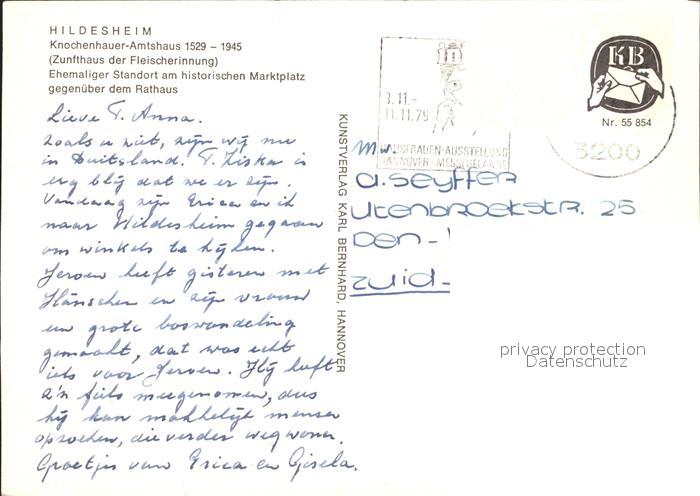 HILDESHEIM
Knochenhauer-Amtshaus 1529 – 1945
(Zunfthaus der Fleischerinnung)
Ehemaliger Standort am historischen Marktplatz
gegenüber dem Rathaus
Lieve T. Anna.
Zoals u ziet, zijn wij nu
in Duitsland. T. Ziska is
erg blij dat we er zijn.
Vandaag zijn Erica en ik
naar Hildesheim gegaan
om winkels te kijken.
Jeroen heeft gisteren met
Hänschen en zijn vriend
een grote boswandeling
gemaakt, dat was echt
iets voor Jeroen. Hij heeft
z'n fiets meegenomen, dus
hij kan makkelijk mensen
opzoeken, die verder weg wonen.
Groetjes van Erica en Gisela.
KUNSTVERLAG KARL BERNHARD, HANNOVER
11.11.79
HAUSFRAUEN-AUSSTELLUNG
HANNOVER-MESSEGELÄNDE
KB
Nr. 55 854
3200
A. Seyffer
Utenbroekstr. 25
Den-
Zuid-
privacy protection
Datenschutz